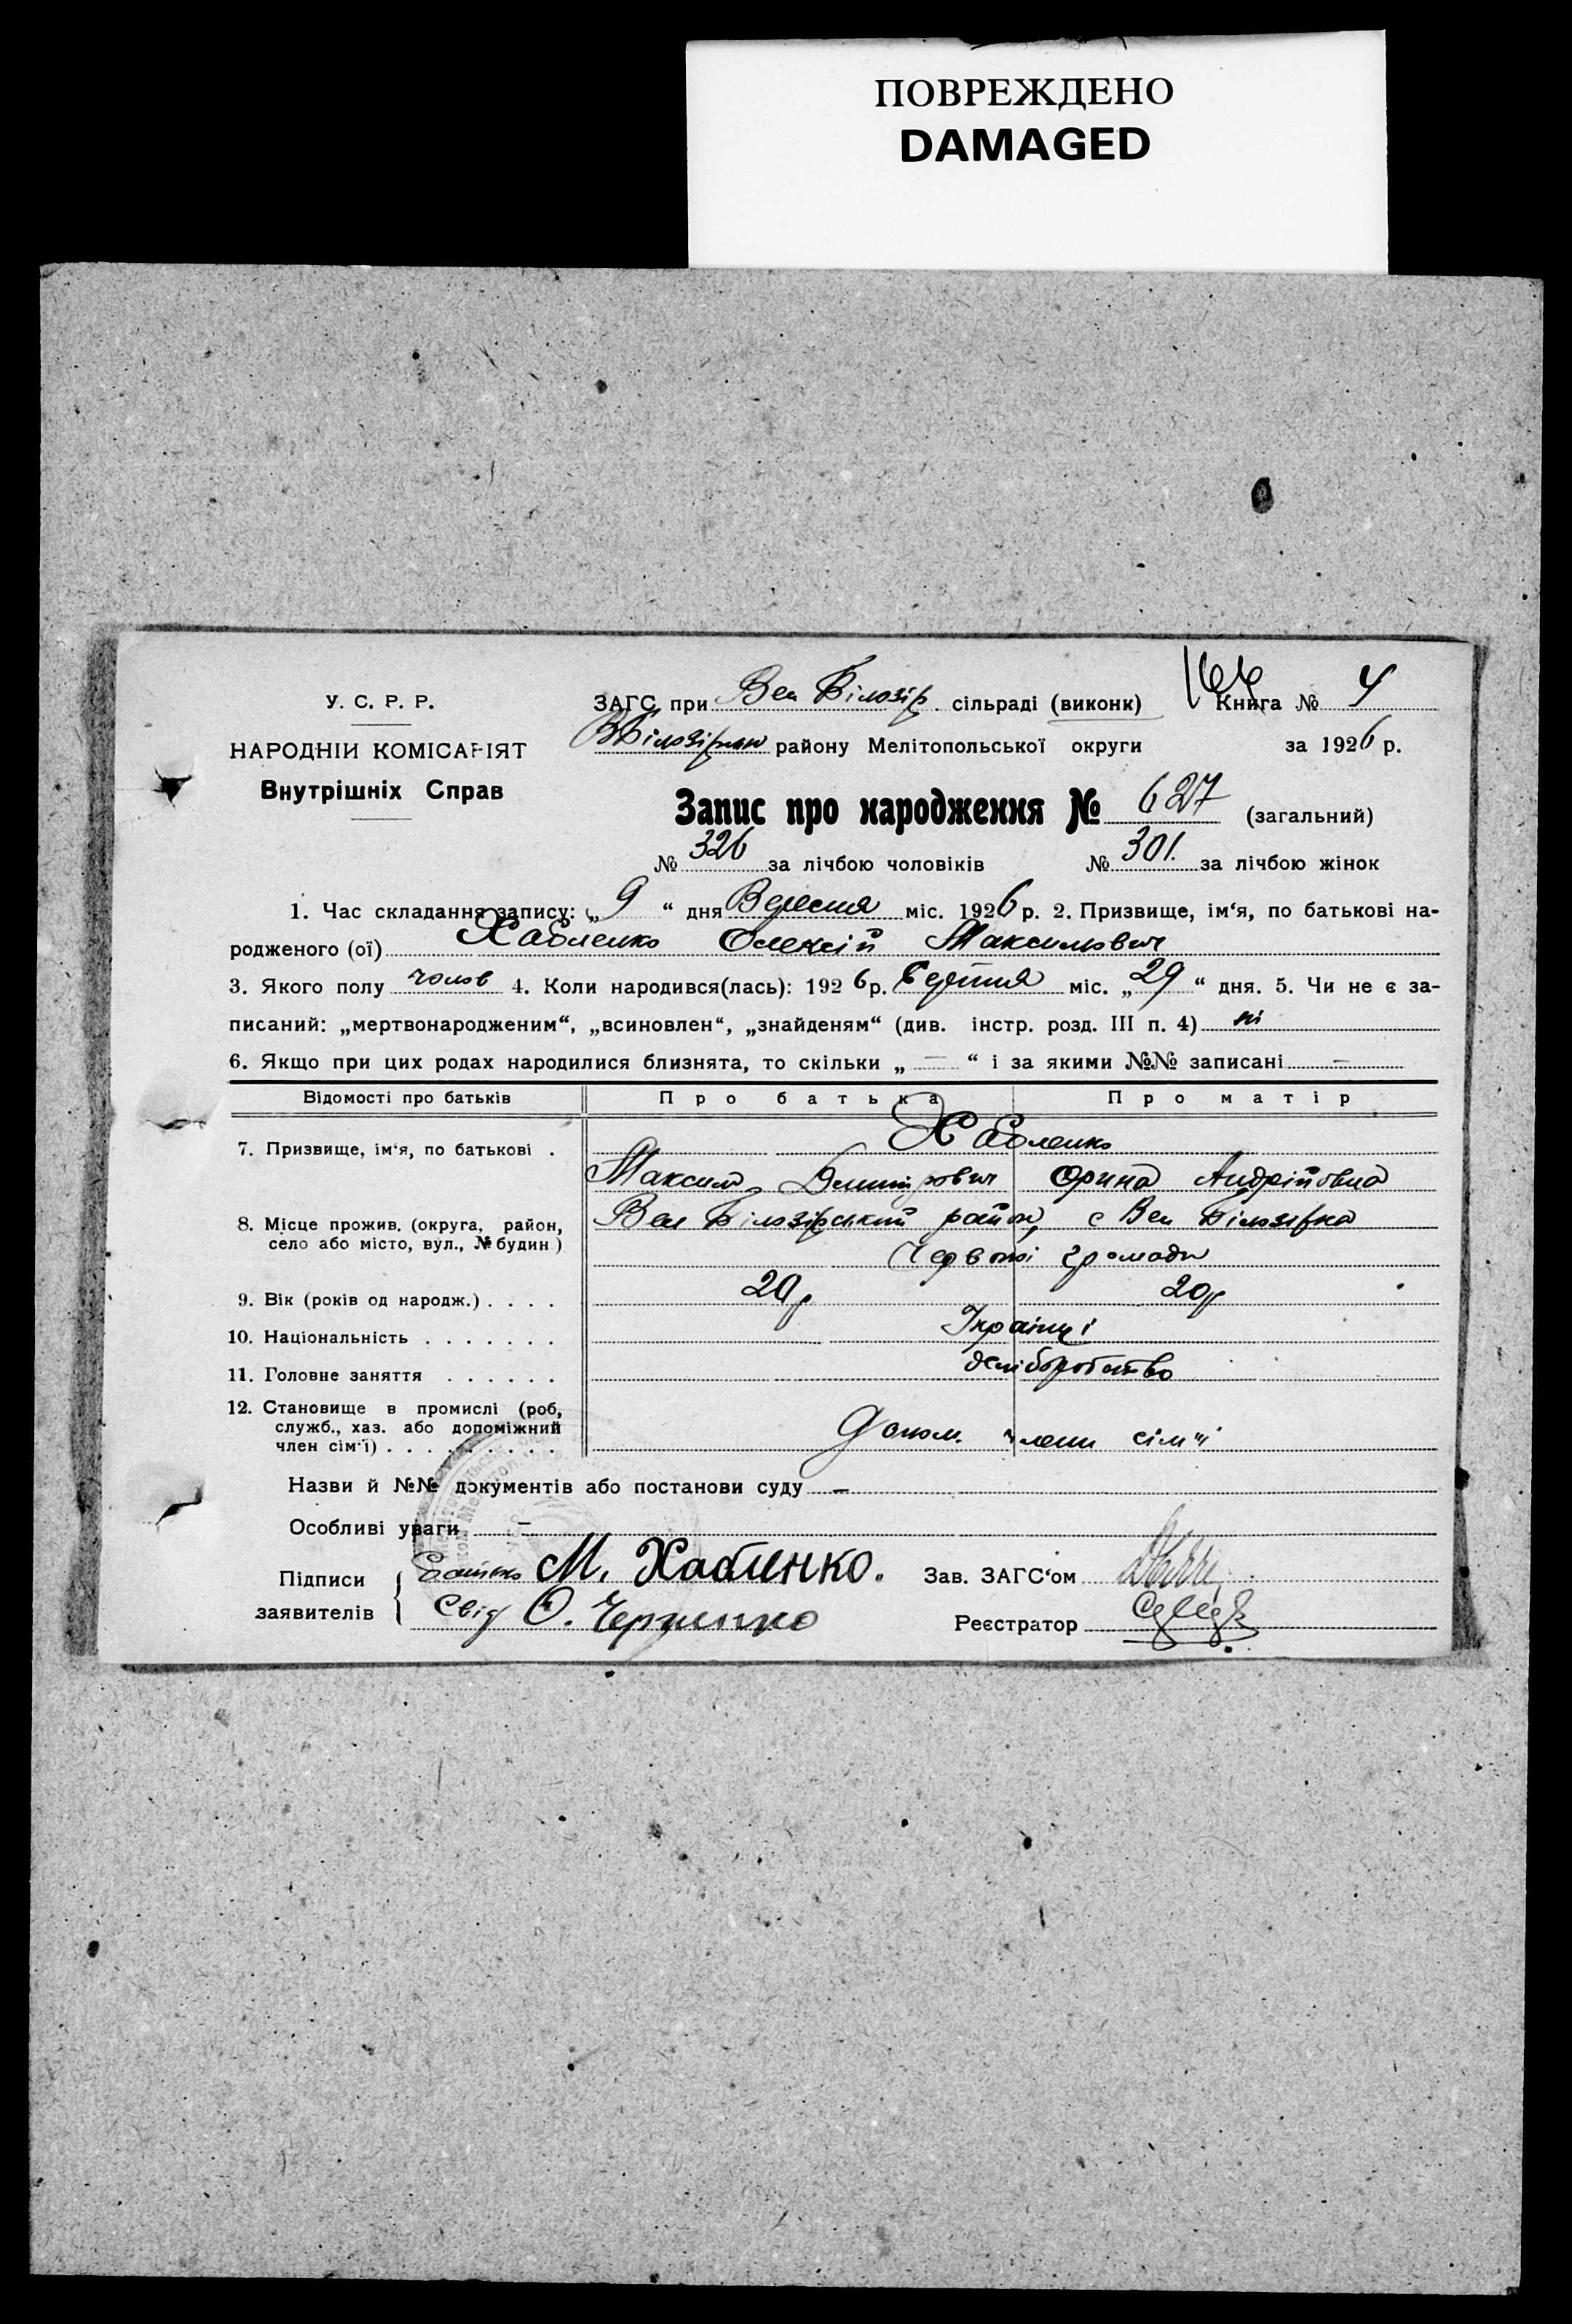 ПОВРЕЖДЕНО
DAMAGED
У. С. Р. Р.
НАРОДНІЙ КОМІСАРІЯТ
Внутрішніх Справ
ЗАГС при Вел Білозір сільраді (виконк) Книга № 4
району Мелітопольської округи за 1926 р.
Запис про народження № 627 (загальний)
№ 326 за лічбою чоловіків № 301. за лічбою жінок
1. Час складання запису: „ 9 “ дня Вересня міс. 1926 р. 2. Призвище, ім‘я, по батькові на-
родженого (ої) Хабленко Олексій Максимович
3. Якого полу чолов 4. Коли народився(лась): 1926 р. Серпня міс. „ 29 “ дня. 5. Чи не є за-
писаний: „мертвонародженим“, „всиновлен“, „знайденям“ (див. інстр. розд. III п. 4) ні
6. Якщо при цих родах народилися близнята, то скільки „ — “ і за якими №№ записані —
Відомості про батьків Про батька Про матір
7. Призвище, ім‘я, по батькові . Хабленко
Максим Дмитрович Орина Андріївна
8. Місце прожив. (округа, район, село або місто, вул., № будин) Вел Білозірський район, с Вел Білозірка
Червоної громади
9. Вік (років од народж.) . . . . 20 р 20 р
10. Національність . . . . . . . Українці
11. Головне заняття . . . . . . хліборобство
12. Становище в промислі (роб, служб., хаз. або допоміжний член сім‘ї) . . . . . . . . . Допом. члени сім‘ї
Назви й №№ документів або постанови суду —
Особливі уваги —
Підписи заявителів Батько М. Хабленко. Зав. ЗАГС‘ом
Свід О. Реєстратор